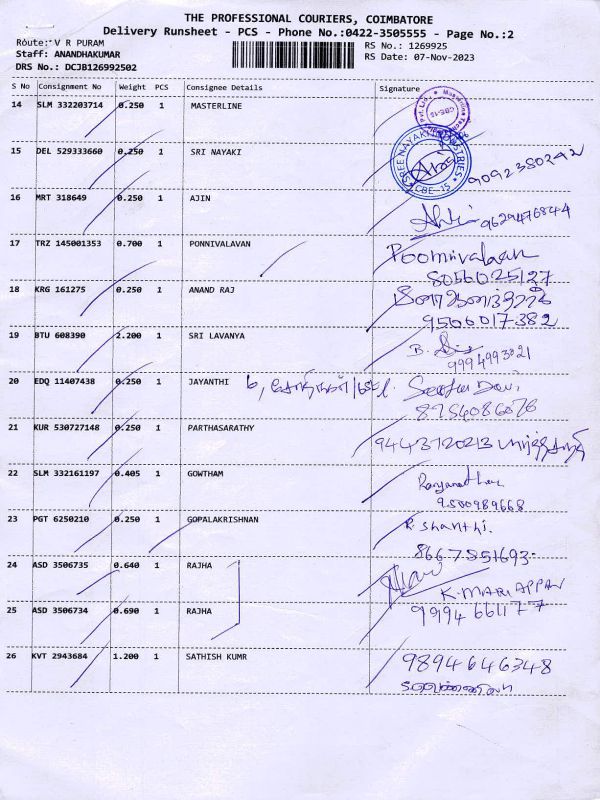 THE PROFESSIONAL COURIERS, COIMBATORE
Delivery Runsheet - PCS - Phone No.:0422-3505555 - Page No.:2
Route: V R PURAM
RS No.: 1269925
Staff: ANANDHAKUMAR
RS Date: 07-Nov-2023
DRS No.: DCJB126992502
S No Consignment No Weight PCS Consignee Details Signature
14 SLM 332203714 0.250 1 MASTERLINE
15 DEL 529333660 0.250 1 SRI NAYAKI
SREE NAYAKI INDUSTRIES
CBE-15
9092380242
16 MRT 318649 0.250 1 AJIN
9629476844
17 TRZ 145001353 0.700 1 PONNIVALAVAN
Poonnivalavan
8056025127
18 KRG 161275 0.250 1 ANAND RAJ
9506017382
19 BTU 608390 2.200 1 SRI LAVANYA
B.
9994993021
20 EDQ 11407438 0.250 1 JAYANTHI
8754086076
21 KUR 530727148 0.250 1 PARTHASARATHY
9443720213 பார்த்தசாரதி
22 SLM 332161197 0.405 1 GOWTHAM
9500989668
23 PGT 6250210 0.250 1 GOPALAKRISHNAN
R. Shanthi.
8667551693
24 ASD 3506735 0.640 1 RAJHA
K. MARIAPPAN
25 ASD 3506734 0.690 1 RAJHA
9994661177
26 KVT 2943684 1.200 1 SATHISH KUMR
9894646348